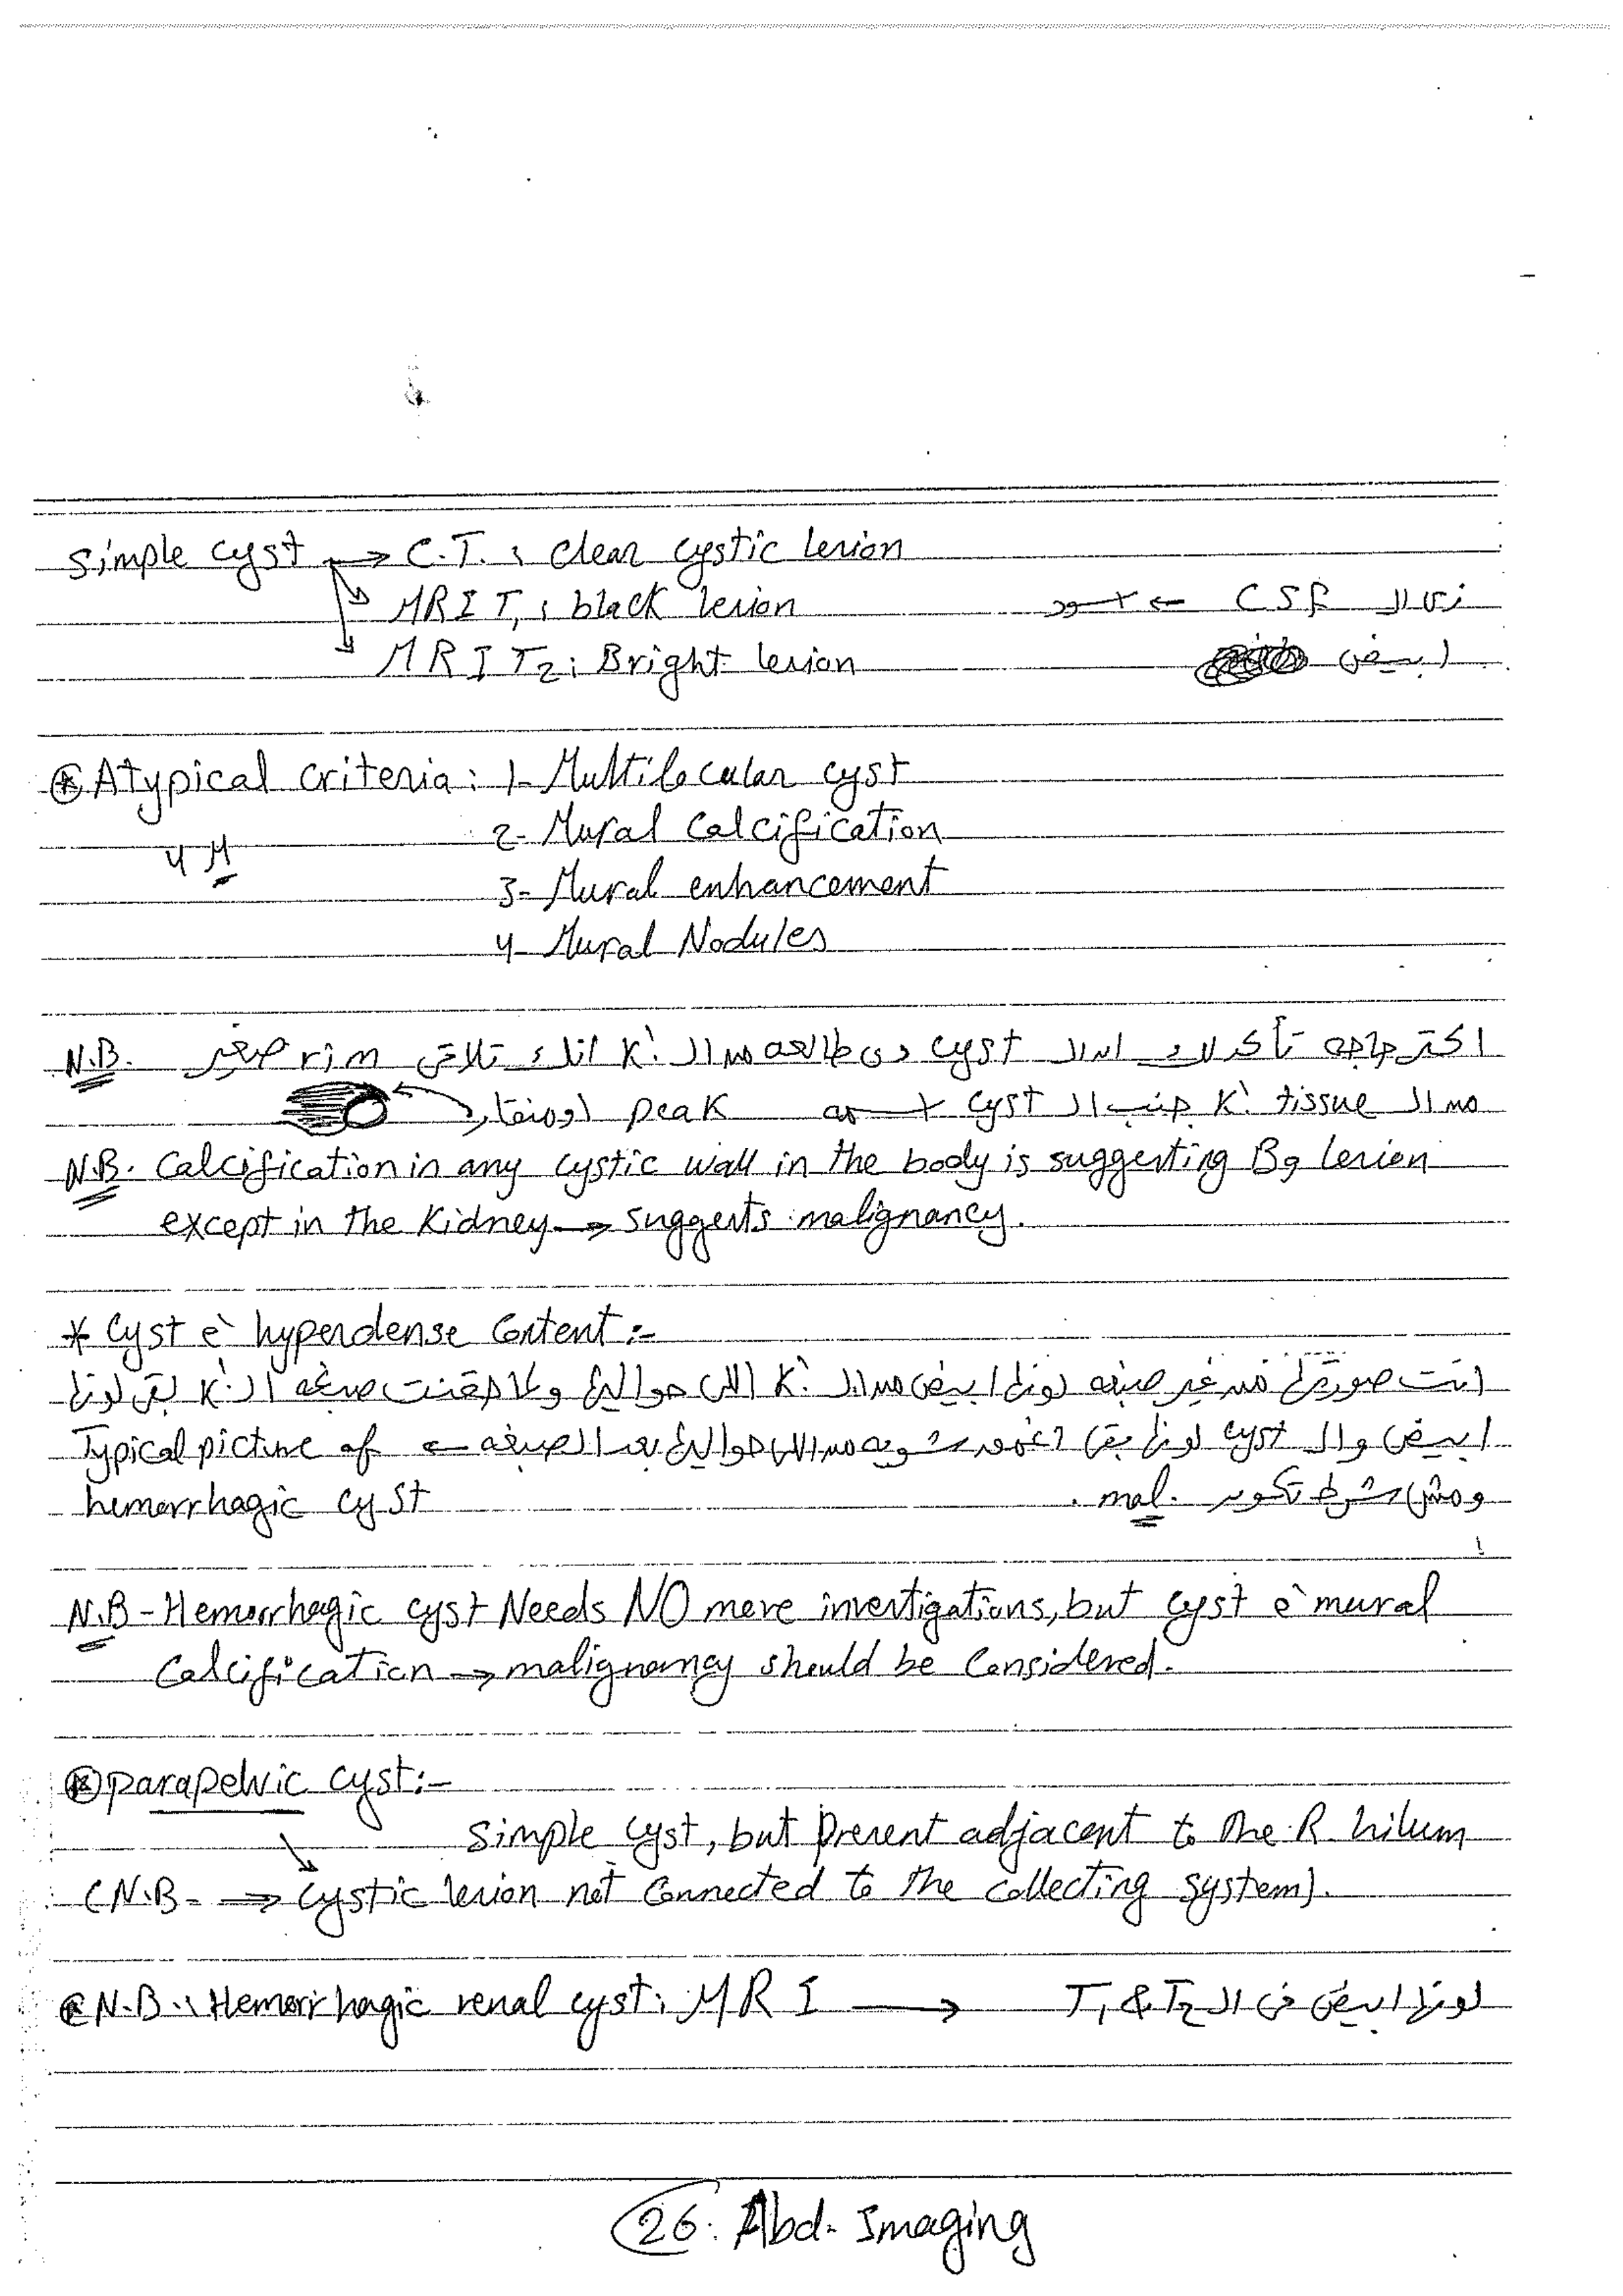 Simple cyst → C.T. : Clear cystic lesion
MRI T1 : black lesion زى ال CSF ← اسود
MRI T2 : Bright lesion ابيض
* Atypical criteria : 1- Multilocular cyst
4 M 2- Mural Calcification
3- Mural enhancement
4- Mural Nodules
N.B. اكتر حاجه تأكد لك ان ال cyst دى طالعه من ال K. انك تلاقى rim صغير
من ال K. tissue جنب ال cyst اسمه peak او منقار
N.B. Calcification in any cystic wall in the body is suggesting B9 lesion
except in the Kidney → suggests malignancy.
* Cyst c̀ hyperdense Content :-
انت صورتها من غير صبغه لونها ابيض من ال K. اللى حواليها ولما حقنت صبغه ال K. بقى لونها
ابيض وال cyst لونها بقى اغمق شويه من اللى حواليها بعد الصبغه ← Typical picture of
hemorrhagic cyst ومش شرط تكون mal.
N.B - Hemorrhagic cyst Needs NO more investigations, but cyst c̀ mural
Calcification → malignancy should be Considered.
* parapelvic cyst :-
Simple cyst, but Present adjacent to the R. hilum
(N.B - → cystic lesion not Connected to the collecting system).
* N.B. : Hemorrhagic renal cyst : MRI → لونها ابيض فى ال T1 & T2
26. Abd. Imaging